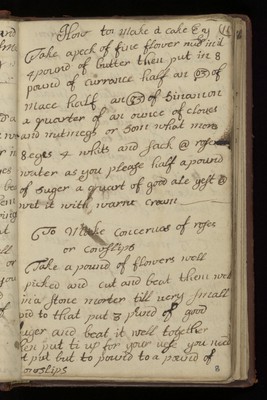 How to Make a cake Ey 16
Take a peck of fine flower rub in it
4 pound of butter then put in 8
pound of currance half an oz of
mace half an oz of Sinamon
a quarter of an ounce of cloves
and nutmegs or som what more
8 eges 4 whits and Sack
water as you please half a pound
of suger a quart of good ale yest
wet it with warme cream
To Make Concerves of roses
or cowslips
Take a pound of flowers well
picked and cut and beat them well
in a stone morter till very small
to that put 3 pund of good
suger and beat it well together
then put ti up for your use you need
put but to pound to a pound of
cowslips 8